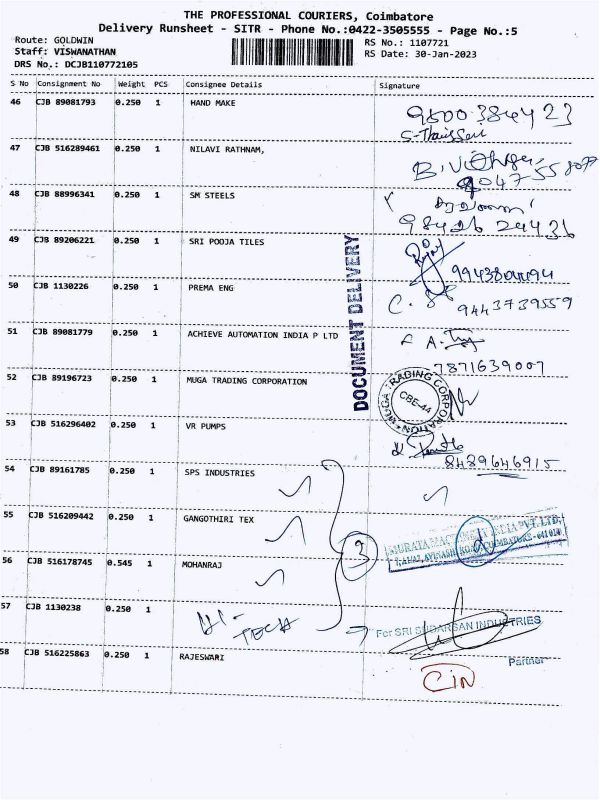 THE PROFESSIONAL COURIERS, Coimbatore
Delivery Runsheet - SITR - Phone No.:0422-3505555 - Page No.:5
Route: GOLDWIN
Staff: VISWANATHAN
DRS No.: DCJB110772105
RS No.: 1107721
RS Date: 30-Jan-2023
S No Consignment No Weight PCS Consignee Details Signature
46 CJB 89081793 0.250 1 HAND MAKE
47 CJB 516289461 0.250 1 NILAVI RATHNAM,
48 CJB 88996341 0.250 1 SM STEELS
98426 24436
49 CJB 89206221 0.250 1 SRI POOJA TILES
50 CJB 1130226 0.250 1 PREMA ENG
9443739559
51 CJB 89081779 0.250 1 ACHIEVE AUTOMATION INDIA P LTD
7871639007
52 CJB 89196723 0.250 1 MUGA TRADING CORPORATION
MUGA TRADING CORPORATION
CBE-44
53 CJB 516296402 0.250 1 VR PUMPS
8489646915
54 CJB 89161785 0.250 1 SPS INDUSTRIES
55 CJB 516209442 0.250 1 GANGOTHIRI TEX
56 CJB 516178745 0.545 1 MOHANRAJ
3
57 CJB 1130238 0.250 1 HI-TECH
For SRI SUDARSAN INDUSTRIES
Partner
58 CJB 516225863 0.250 1 RAJESWARI
DOCUMENT DELIVERY